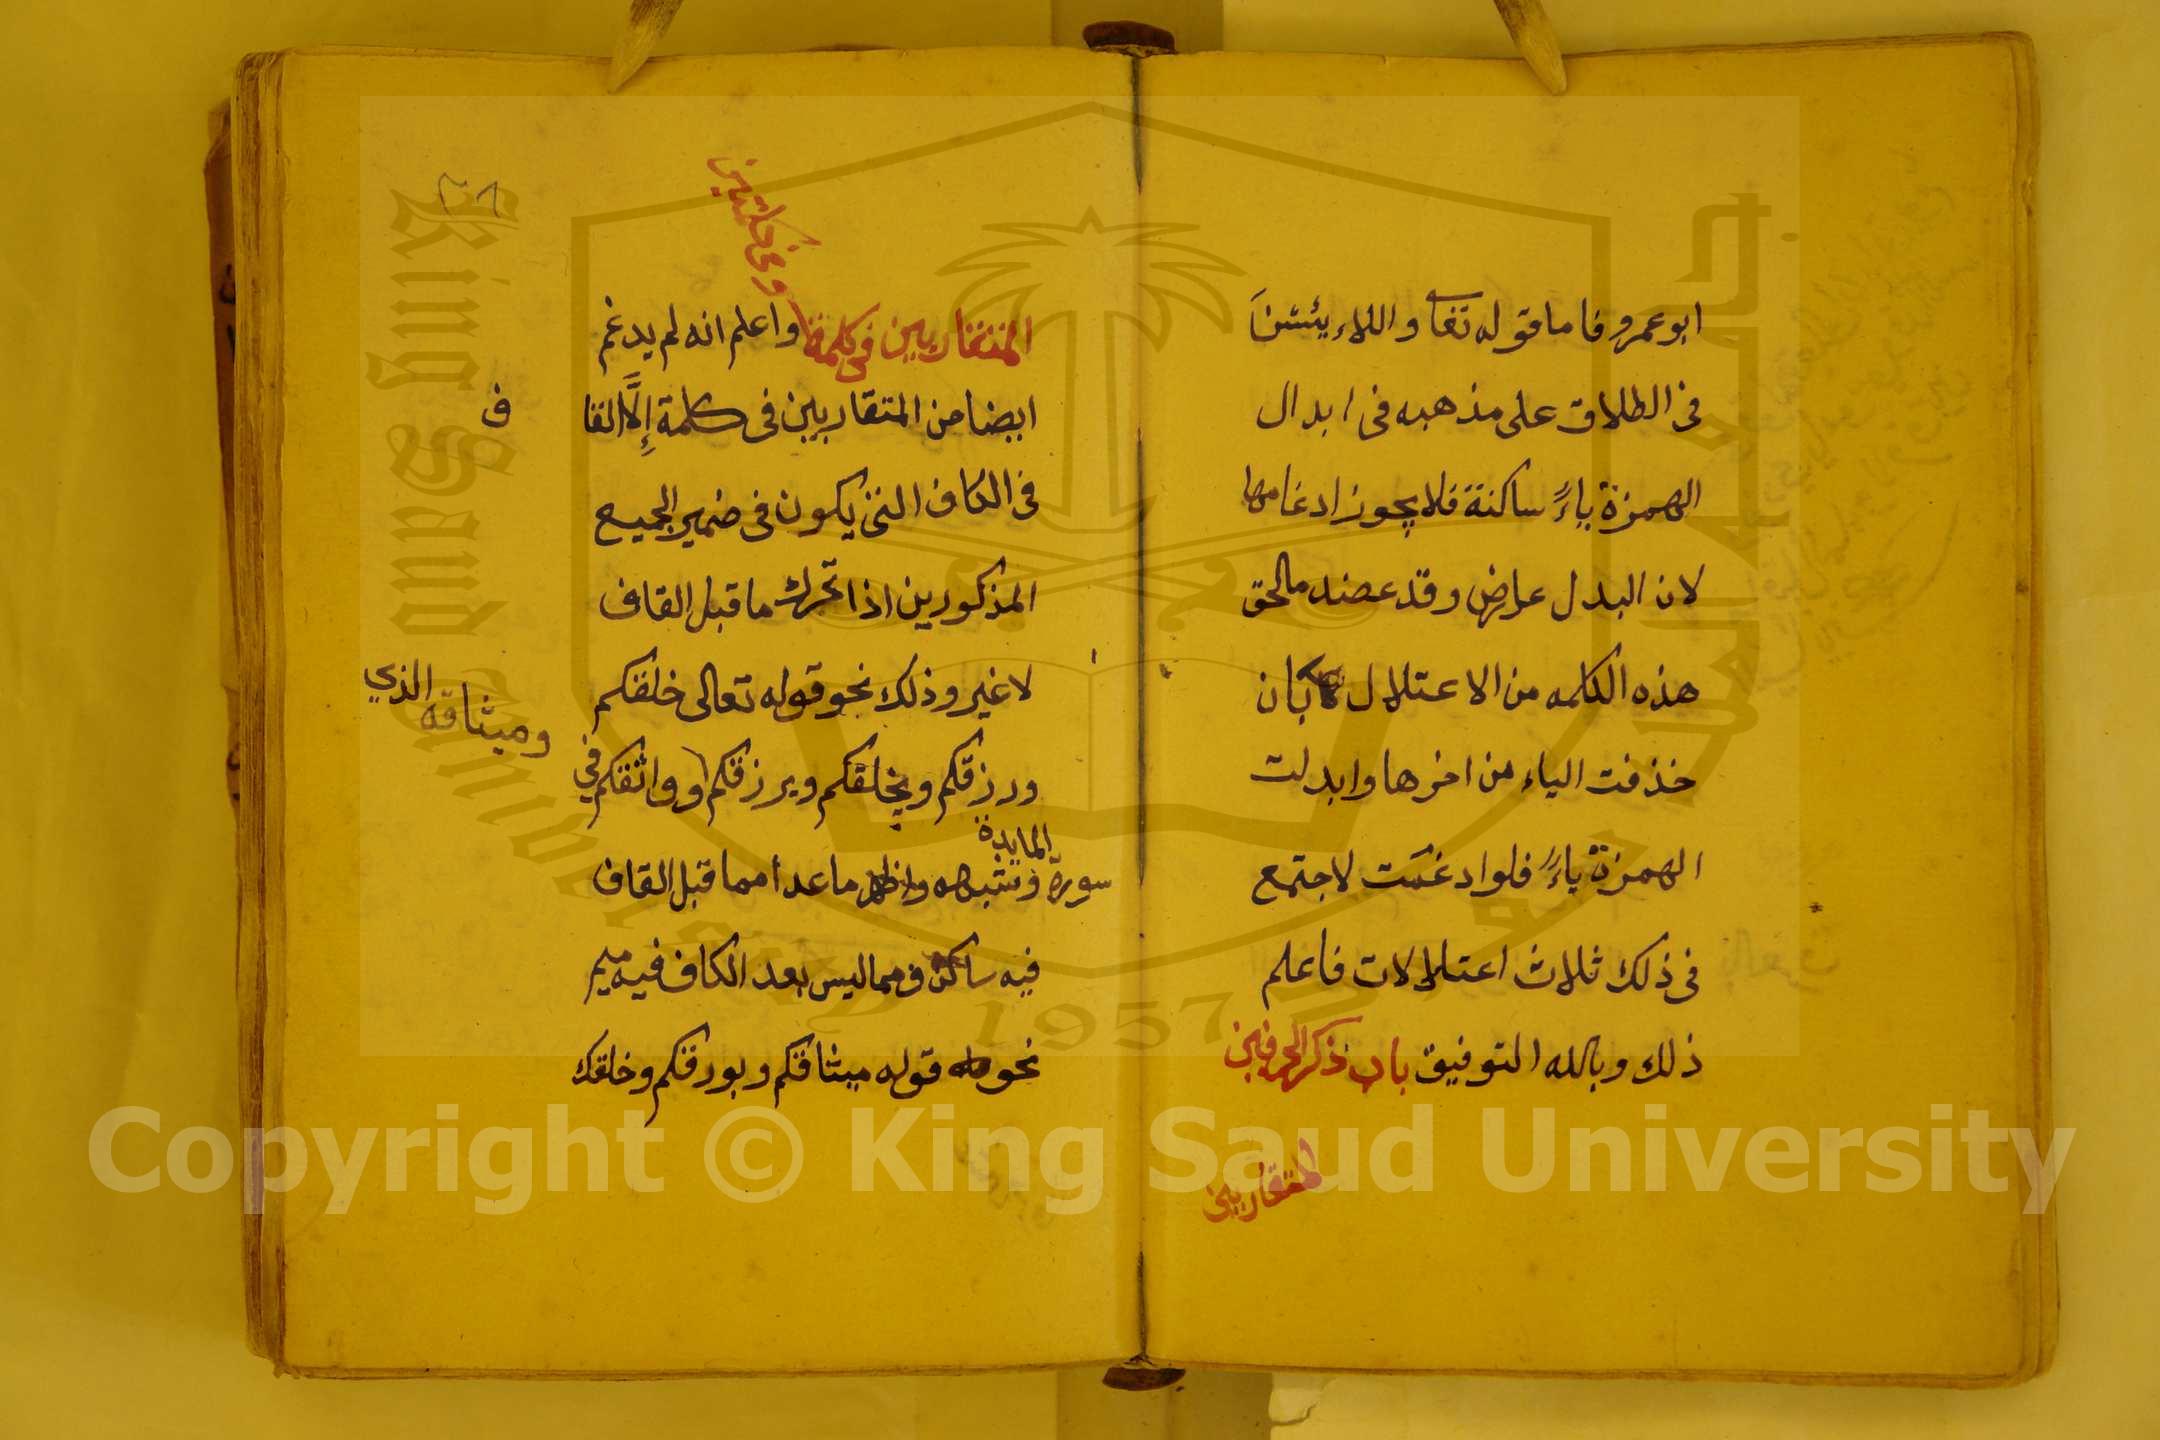 ابوعمرو فاما قوله تعا واللاء يئسنَ
فى الطلاق على مذهبه فى ابدال
الهمزة ياءً ساكنة فلا يجوز ادغامها
لان البدل عارض وقد عضد مالحق
هذه الكلمه من الاعتلال بان
حذفت الياء من اخرها وابدلت
الهمزة ياءً فلو ادغمت لاجتمع
فى ذلك ثلاث اعتلالات فاعلم
ذلك وبالله التوفيق باب ذكر الحرفين
المتقاربين
٢٨
المتقاربين فى كلمة وفى كلمتين واعلم انه لم يدغم
ايضا من المتقاربين فى كلمة إلَّا القا
ف
فى الكاف التى يكون فى ضمير الجميع
المذكورين اذا تحرك ما قبل القاف
لا غير وذلك نحو قوله تعالى خلقكم
ورزقكم ويخلقكم ويرزقكم وواثقكم في
وميثاقه الذي
سورة المايدة وشبهه واظهر ماعدا مما قبل القاف
فيه ساكن ومماليس بعد الكاف فيه ميم
نحو قوله ميثاقكم وبورقكم وخلقك
King Saud University
1957
Copyright © King Saud University